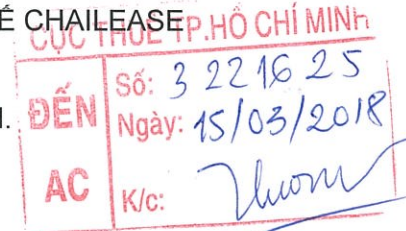 Ế CHAILEASE
CỤC THUẾ TP.HỒ CHÍ MINH
ĐẾN
AC
Số: 3 221625
Ngày: 15/03/2018
K/c: